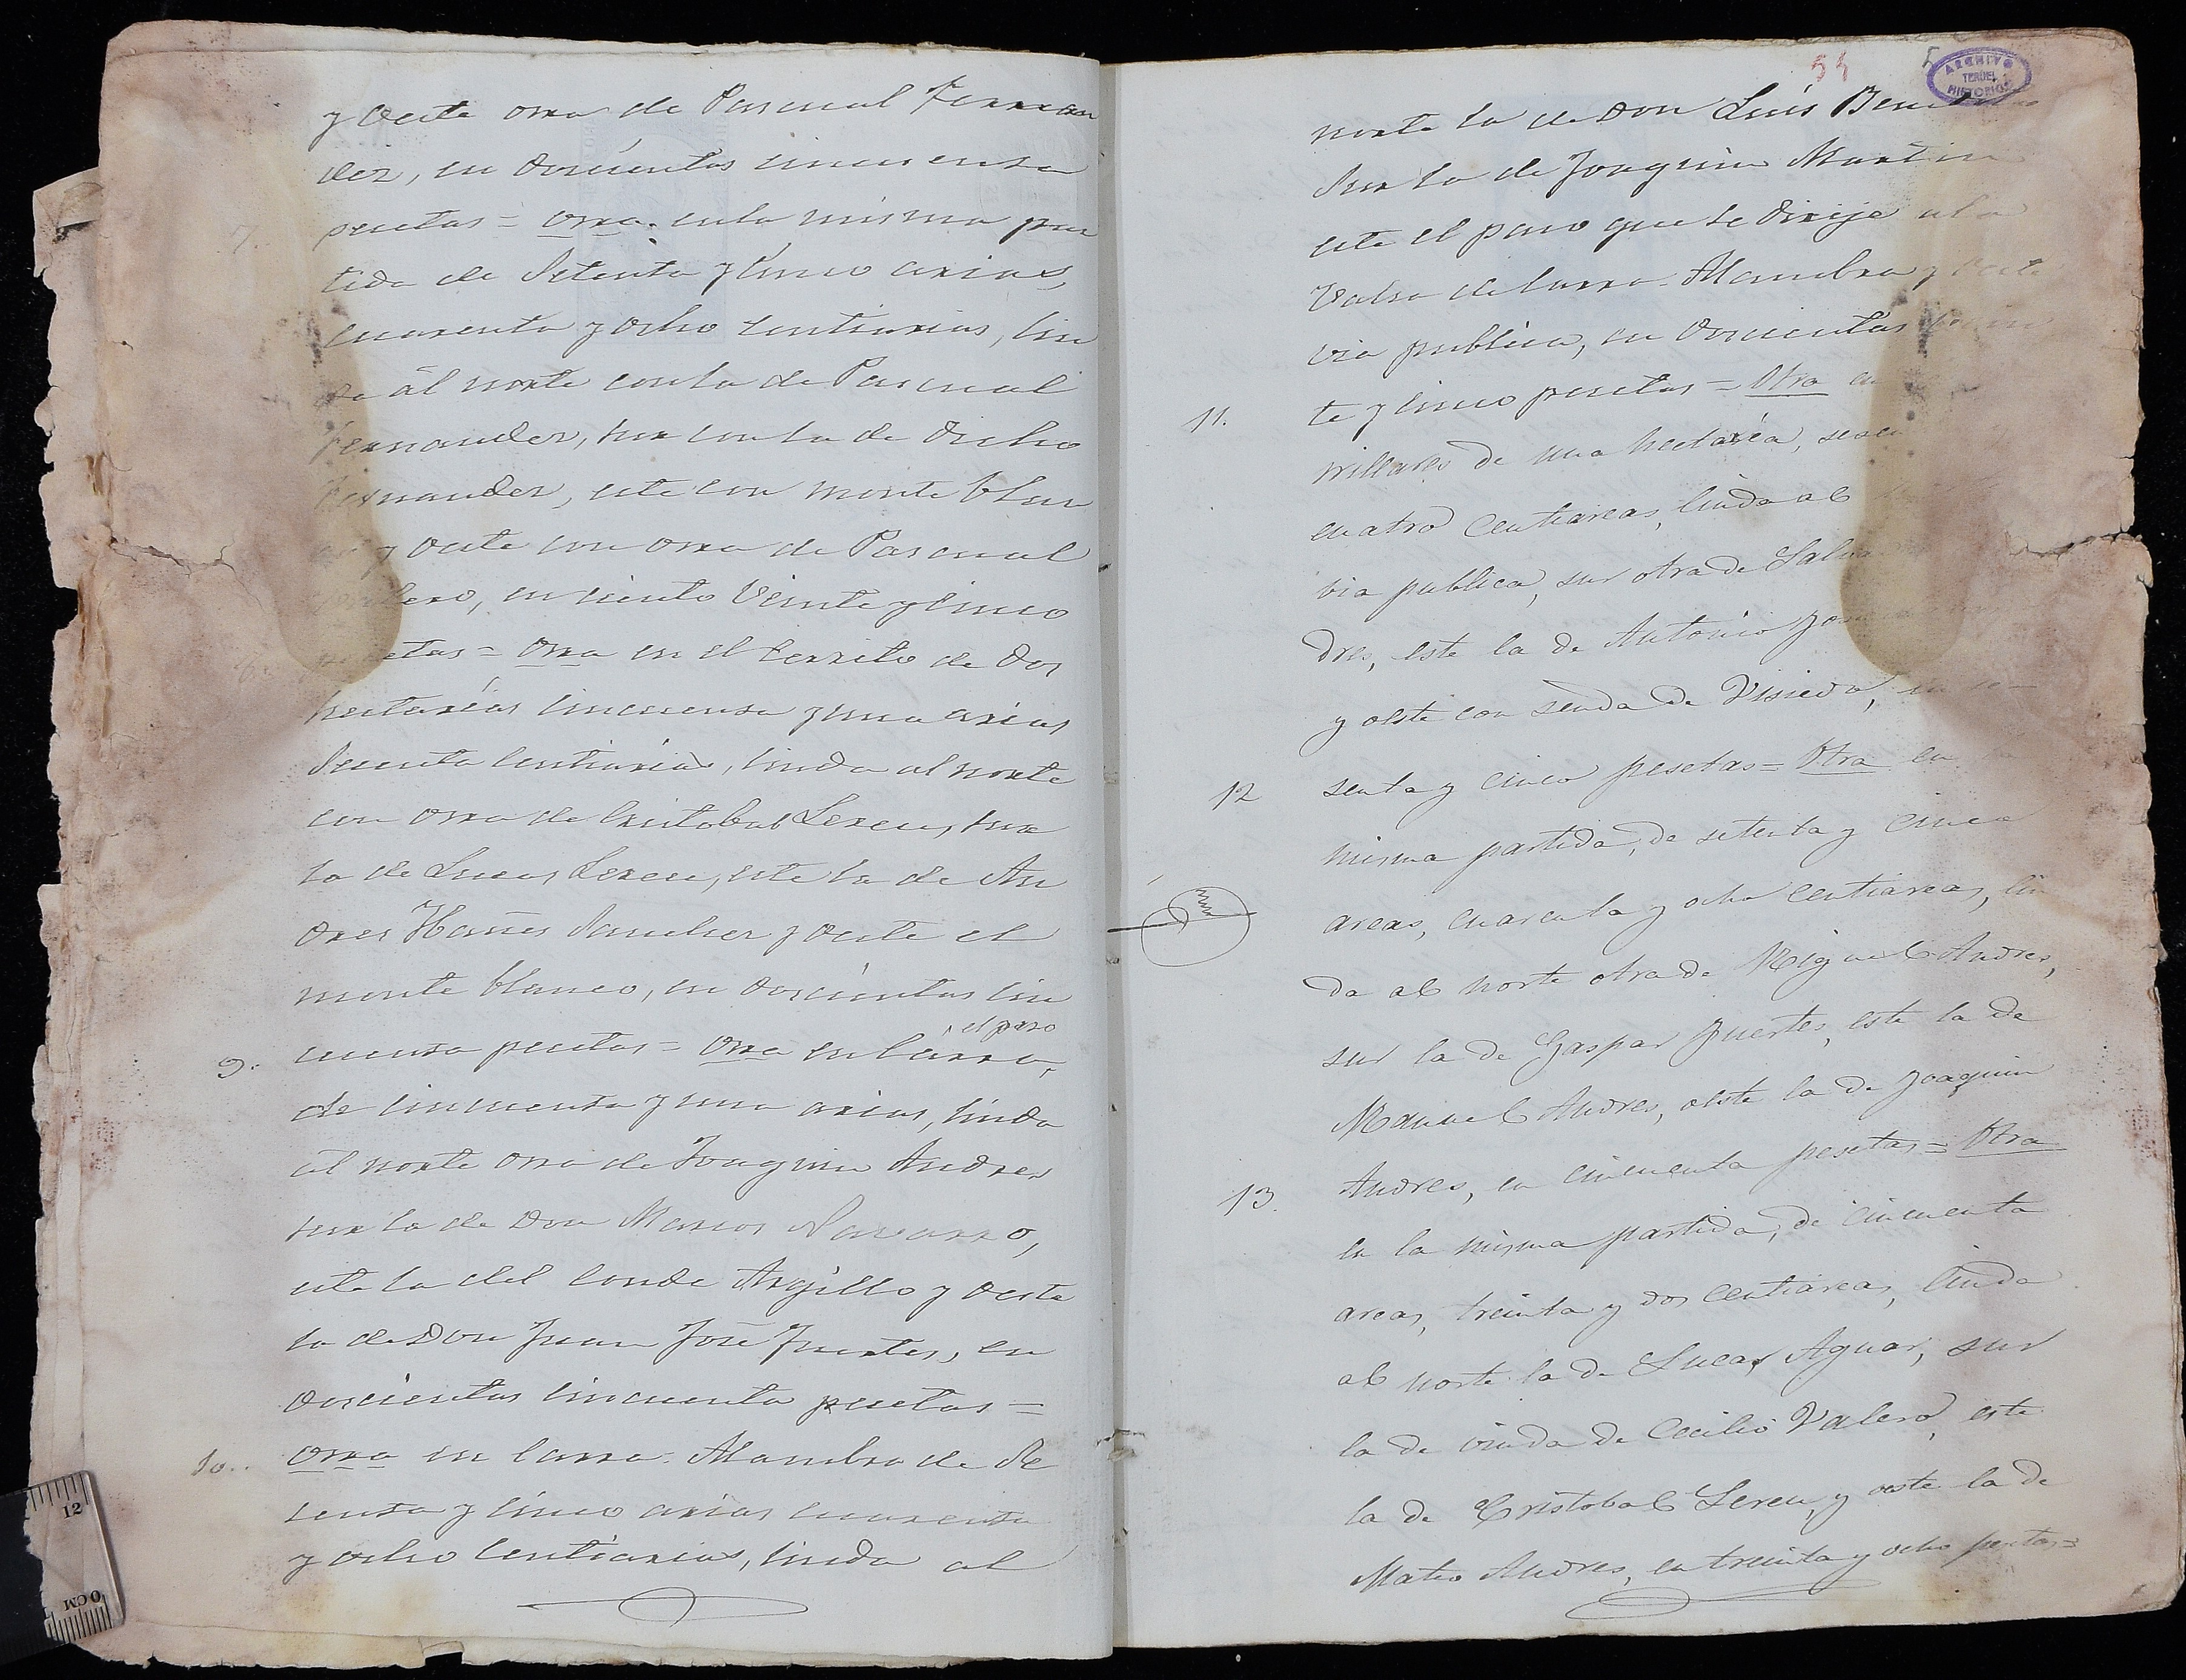 y Oeste otra de Pascual Fernan
dez, en doscientas cincuenta
7. pesetas = otra en la misma par
tida de Setenta y cinco arias,
cuarenta y ocho centiarias, lin
da al norte con la de Pascual
Fernandez, sur con la de dicho
Fernandez, este con monte blan
y Oeste con otra de Pascual
en ciento Veinte y cinco
8. pesetas = otra en el Cerrito de dos
hectarias cincuenta y una arias
Secenta centiarias, linda al norte
con otra de Cristobal Lereu, sur
la de Lucas Lereu, este la de An
dres Ibañes Sanchez y Oeste el
monte blanco, en doscientas cin
el paso
9. cuenta pesetas = otra en Carra,
de cincuenta y una arias, linda
al norte otra de Joaquin Andres
sur la de Don Marcos Navarro,
este la del Conde Argillo y Oeste
la de Don Juan José Fuertes, en
doscientas cincuenta pesetas =
10.. otra en Carra-Alambra de Se
tenta y cinco arias cuarenta
y ocho centiarias, linda al
54 5
ARCHIVO
TERUEL
HISTORICO
norte la de Don Luis
Sur la de Joaquin Martin
este el paso que se dirije a la
Balsa de Carra-Alambra y Oeste
via publica, en doscientas
11. te y cinco pesetas = Otra en
de una hectaréa,
cuatro centiareas, linda al
via publica, sur otra de
dres, este la de Antonio
y oeste con senda de Visiedo, en se-
12 senta y cinco pesetas = Otra en
misma partida, de setenta y cinco
areas, cuarenta y ocho centiareas, lin
da al norte otra de Miguel Andres,
sur la de Gaspar Fuertes, este la de
Manuel Andres, oeste la de Joaquin
13. Andres, en cincuenta pesetas = Otra
en la misma partida, de cincuenta
areas, treinta y dos centiareas, linda
al norte la de Lucas Aguar, sur
la de viuda de Cecilio Valero, este
la de Cristobal Lereu, y oeste la de
Mateo Andres, en treinta y ocho pesetas =
12
0 CM